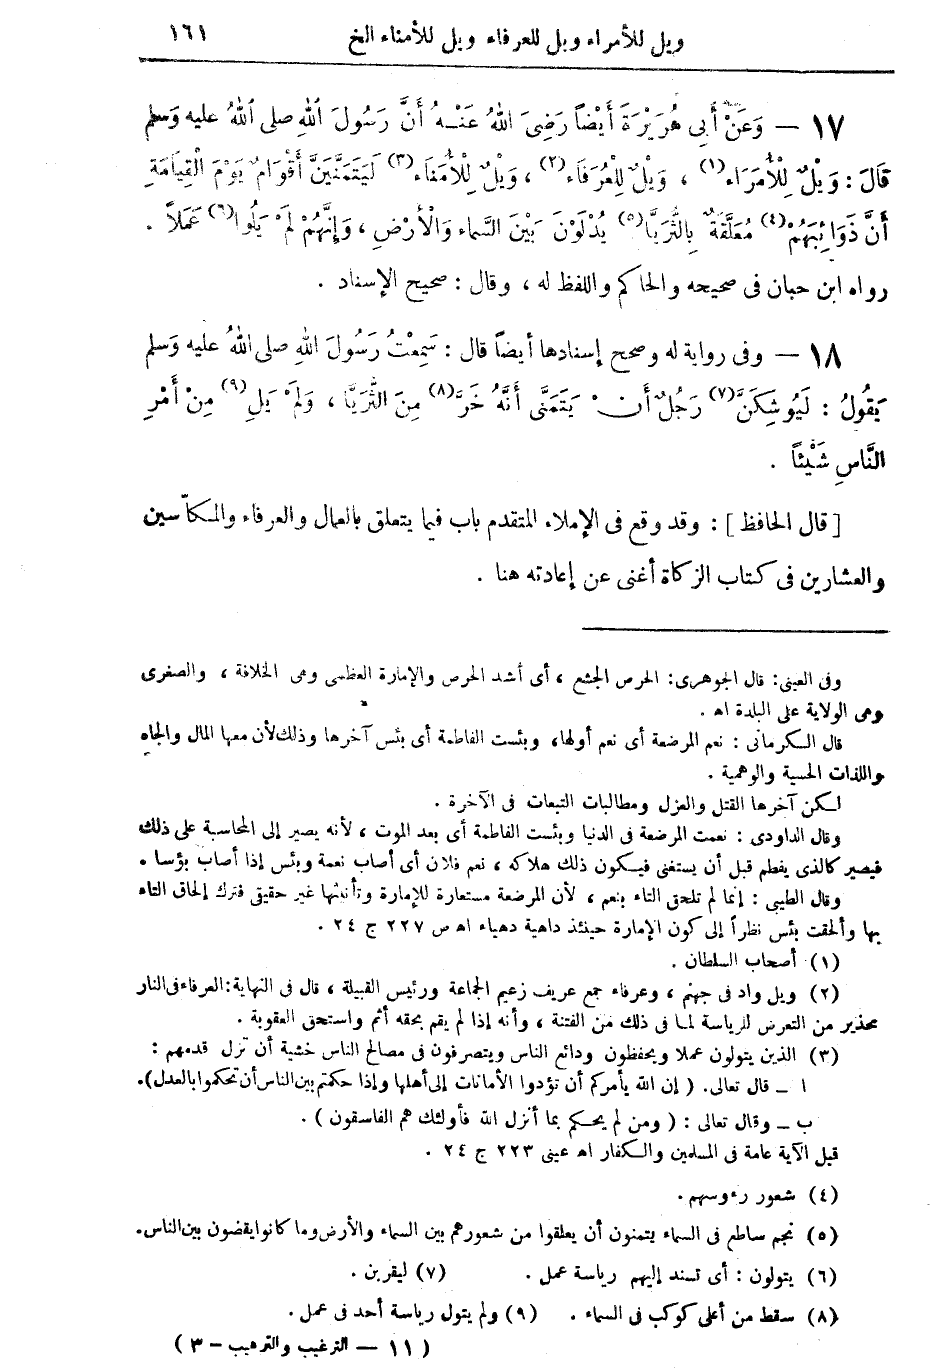 ويل للأمراء ويل للعرفاء ويل للأمناء الخ ١٦١
١٧ — وَعَنْ أَبِى هُرَيْرَةَ أَيْضاً رَضِىَ اللهُ عَنْهُ أَنَّ رَسُولَ اللهِ صلى اللهُ عليه وَسلم
قَالَ : وَيْلٌ لِلْأُمَرَاء(١) ، وَيْلٌ لِلْعُرَفَاء(٢) ، وَيْلٌ لِلْأُمَنَاء(٣) لَيَتَمَنَّيَنَّ أَقْوَامٌ يَوْمَ الْقِيَامَةِ
أَنَّ ذَوَائِبَهُمْ(٤) مُعَلَّقَةٌ بِالثُّرَيَّا(٥) يُدْلَوْنَ بَيْنَ السَّماء وَالْأَرْضِ ، وَإِنَّهُمْ لَمْ يَلُوا(٦) عَمَلاً .
رواه ابن حبان فى صحيحه والحاكم واللفظ له ، وقال : صحيح الإسناد .
١٨ — وفى رواية له وصحح إسنادها أيضاً قال : سَمِعْتُ رَسُولَ اللهِ صلى اللهُ عليه وَسلم
يَقُولُ : لَيُوشِكَنَّ(٧) رَجُلٌ أَنْ يَتَمَنَّى أَنَّهُ خَرَّ(٨) مِنَ الثُّرَيَّا ، وَلَمْ يَلِ(٩) مِنْ أَمْرِ
النَّاسِ شَيْئاً .
[ قال الحافظ ] : وقد وقع فى الإملاء المتقدم باب فيما يتعلق بالعمال والعرفاء والمكاّسين
والعشارين فى كتاب الزكاة أغنى عن إعادته هنا .
وفى العينى : قال الجوهرى : الحرص الجشع ، أى أشد الحرص والإمارة العظمى وهى الخلافة ، والصغرى
وهى الولاية على البلدة اه .
قال الكرمانى : نعم المرضعة أى نعم أولها، وبئست الفاطمة أى بئس آخرها وذلك لأن معها المال والجاه
واللذات الحسية والوهمية .
لكن آخرها القتل والعزل ومطالبات التبعات فى الآخرة .
وقال الداودى : نعمت المرضعة فى الدنيا وبئست الفاطمة أى بعد الموت ، لأنه يصير إلى المحاسبة على ذلك
فيصير كالذى يفطم قبل أن يستغنى فيكون ذلك هلاكه ، نعم فلان أى أصاب نعمة وبئس إذا أصاب بؤسا .
وقال الطيبى : إنما لم تلحق التاء بنعم ، لأن المرضعة مستعارة للإمارة وتأنيثها غير حقيقى فترك إلحاق التاء
بها وألحقت بئس نظراً إلى كون الإمارة حينئذ داهية دهياء اه ص ٢٢٧ ج ٢٤ .
(١) أصحاب السلطان .
(٢) ويل واد فى جهنم ، وعرفاء جمع عريف زعيم الجماعة ورئيس القبيلة ، قال فى النهاية : العرفاء فى النار
تحذير من التعرض للرياسة لما فى ذلك من الفتنة ، وأنه إذا لم يقم بحقه أثم واستحق العقوبة .
(٣) الذين يتولون عملا ويحفظون ودائع الناس ويتصرفون فى مصالح الناس خشية أن تزل قدمهم :
ا — قال تعالى. ( إن الله يأمركم أن تؤدوا الأمانات إلى أهلها وإذا حكمتم بين الناس أن تحكموا بالعدل).
ب — وقال تعالى : ( ومن لم يحكم بما أنزل الله فأولئك هم الفاسقون ) .
قيل الآية عامة فى المسلمين والكفار اه عينى ٢٢٣ ج ٢٤ .
(٤) شعور رءوسهم.
(٥) نجم ساطع فى السماء يتمنون أن يعلقوا من شعورهم بين السماء والأرض وما كانوا يقضون بين الناس.
(٦) يتولون : أى تسند إليهم رياسة عمل . (٧) ليقربن .
(٨) سقط من أعلى كوكب فى السماء . (٩) ولم يتول رياسة أحد فى عمل .
( ١١ — الترغيب والترهيب – ٣ )